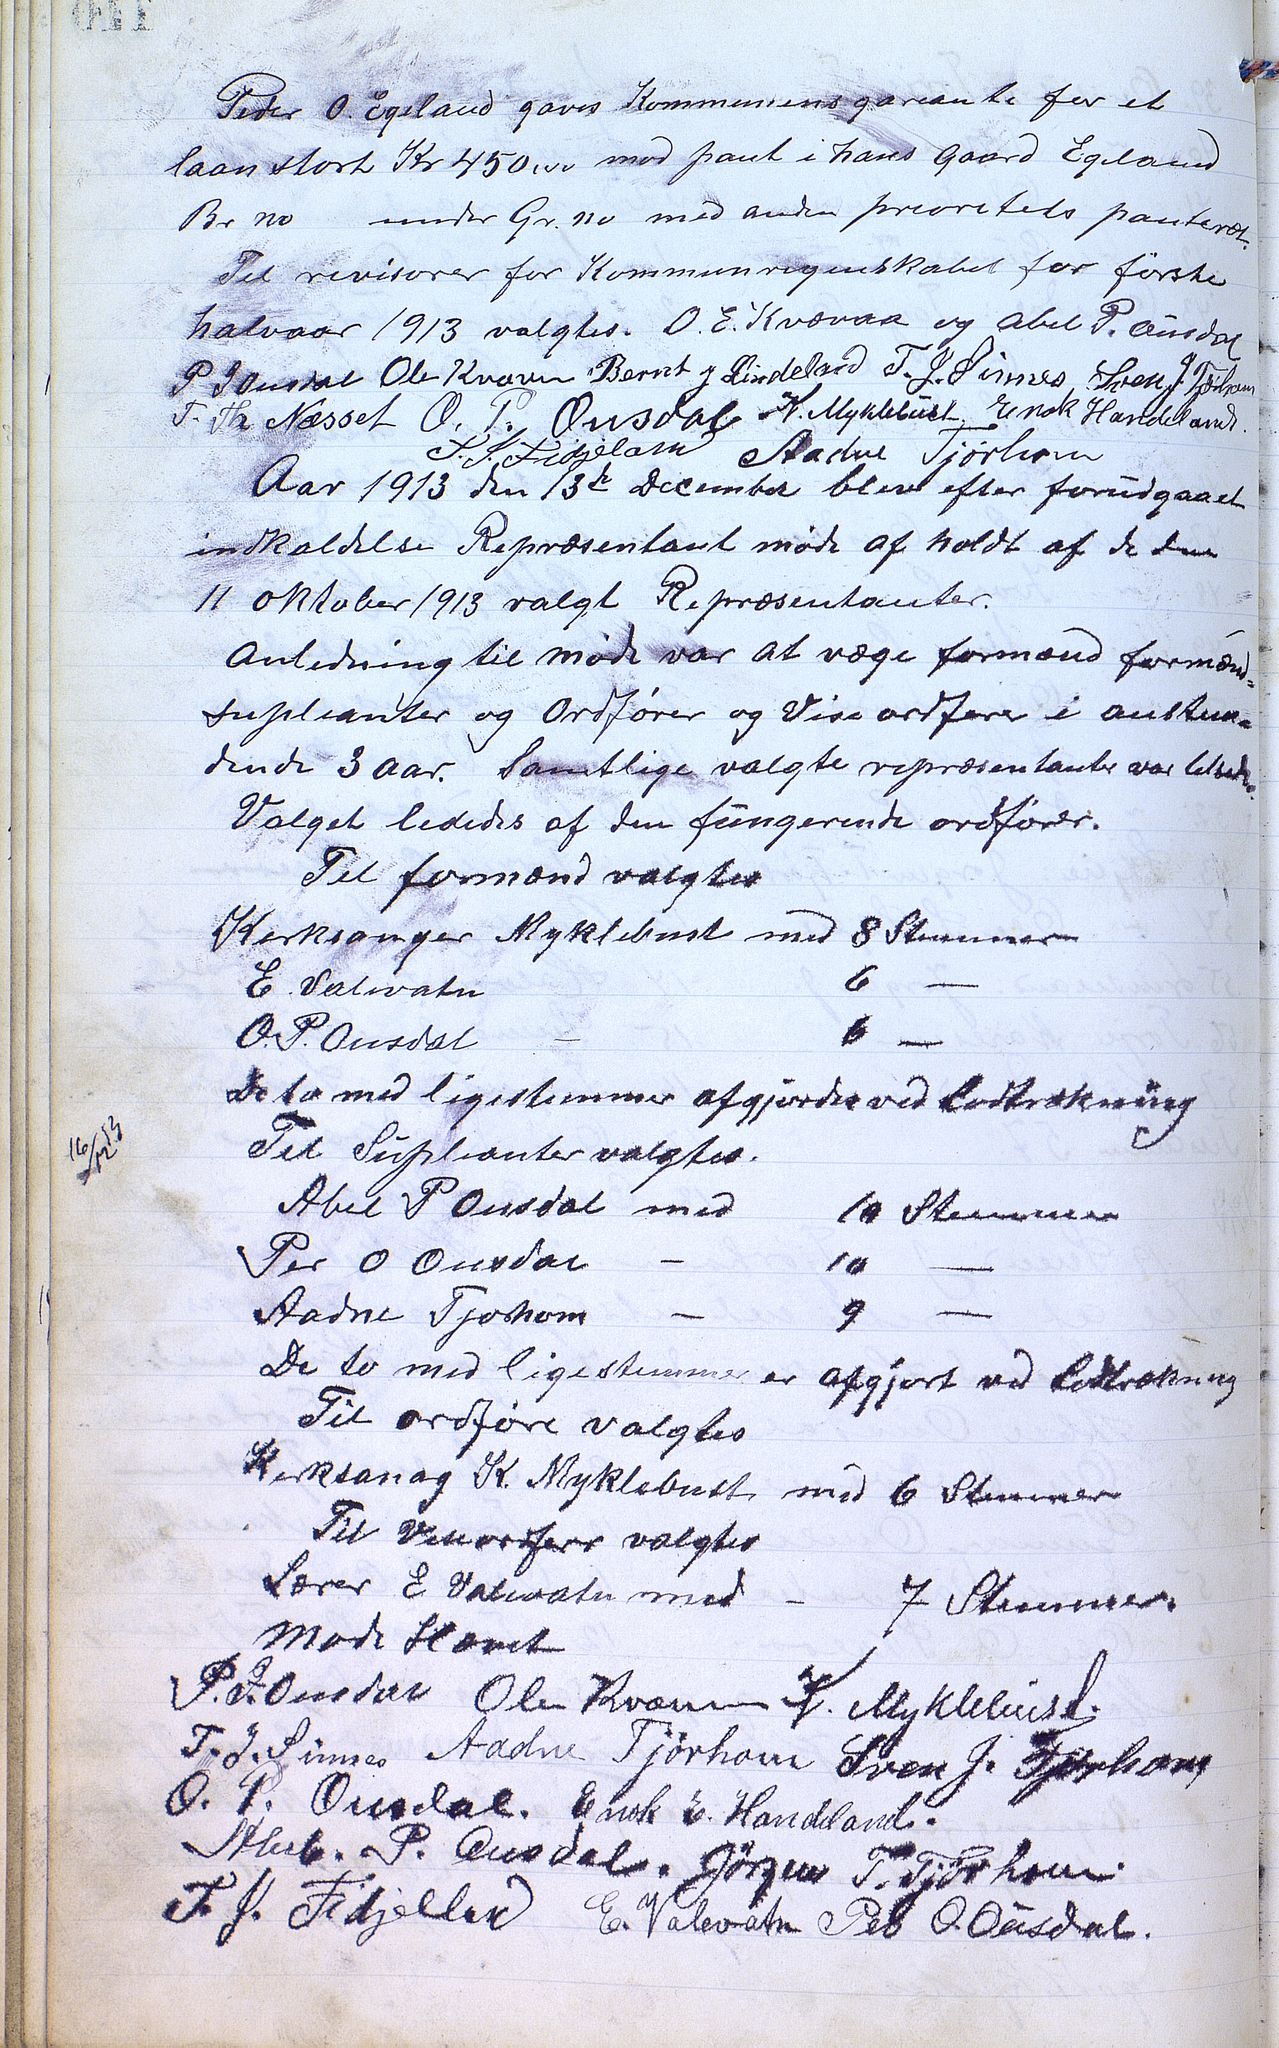 Peder O. Egeland gaves Kommunens garante for et
laan stort Kr 450,00 mod pant i hans Gaard Egeland
Br no under Gr. no med anden prioritets panteret.
Til revisorer for Kommunregnskabet for förste
halvaar 1913 valgtes. O. E. Kvævaa og Abel P. Ousdal
P J Ousdal Ole Kvæven Bernt J Lindeland T. J. Sinnes Sven J. Tjørhom
T. Th Næsset O. P. Ousdal K. Myklebust Enok Handeland.
T. J. Fidjeland Aadne Tjørhom
Aar 1913 den 13de December blev efter forudgaaet
indkaldelse Repræsentant møde af holdt af de den
11 oktober 1913 valgt Repræsentanter.
Anledning til møde var at væge formænd formænd=
supleanter og Ordfører og Vise ordfører i ansten=
dende 3 aar. Samtlige valgte repræsentanter var tilstede.
Valget lededes af den fungerende ordfører.
Til formænd valgtes
Kerksanger Myklebust med 8 Stemmer
E Valevatn 6 —
O. P. Ousdal - 6 —
De to med ligestemmer afgjordes ved lodtrækning
16/12 13
Til Supleanter valgtes.
Abel P Ousdal med 10 Stemmer
Per O Ousdal - 10 —
Aadne Tjorhom - 9 —
De to med ligestemmer er afgjort ved lodtrækning
Til ordföre valgtes
Kerksanag K. Myklebust med 6 Stemmer
Til Viseordfører valgtes
Lærer E Valevatn med - 7 Stemmer.
Møde Hævet
P. J. Ousdal Ole Kvæven K. Myklebust.
T. J. Sinnes Aadne Tjörhom Sven J. Tjørhom
O. P. Ousdal. Enok E. Handeland.
Abel. P. Ousdal. Jørgen T. Tjørhom.
T. J. Fidjeland E. Valevatn Per O. Ousdal.